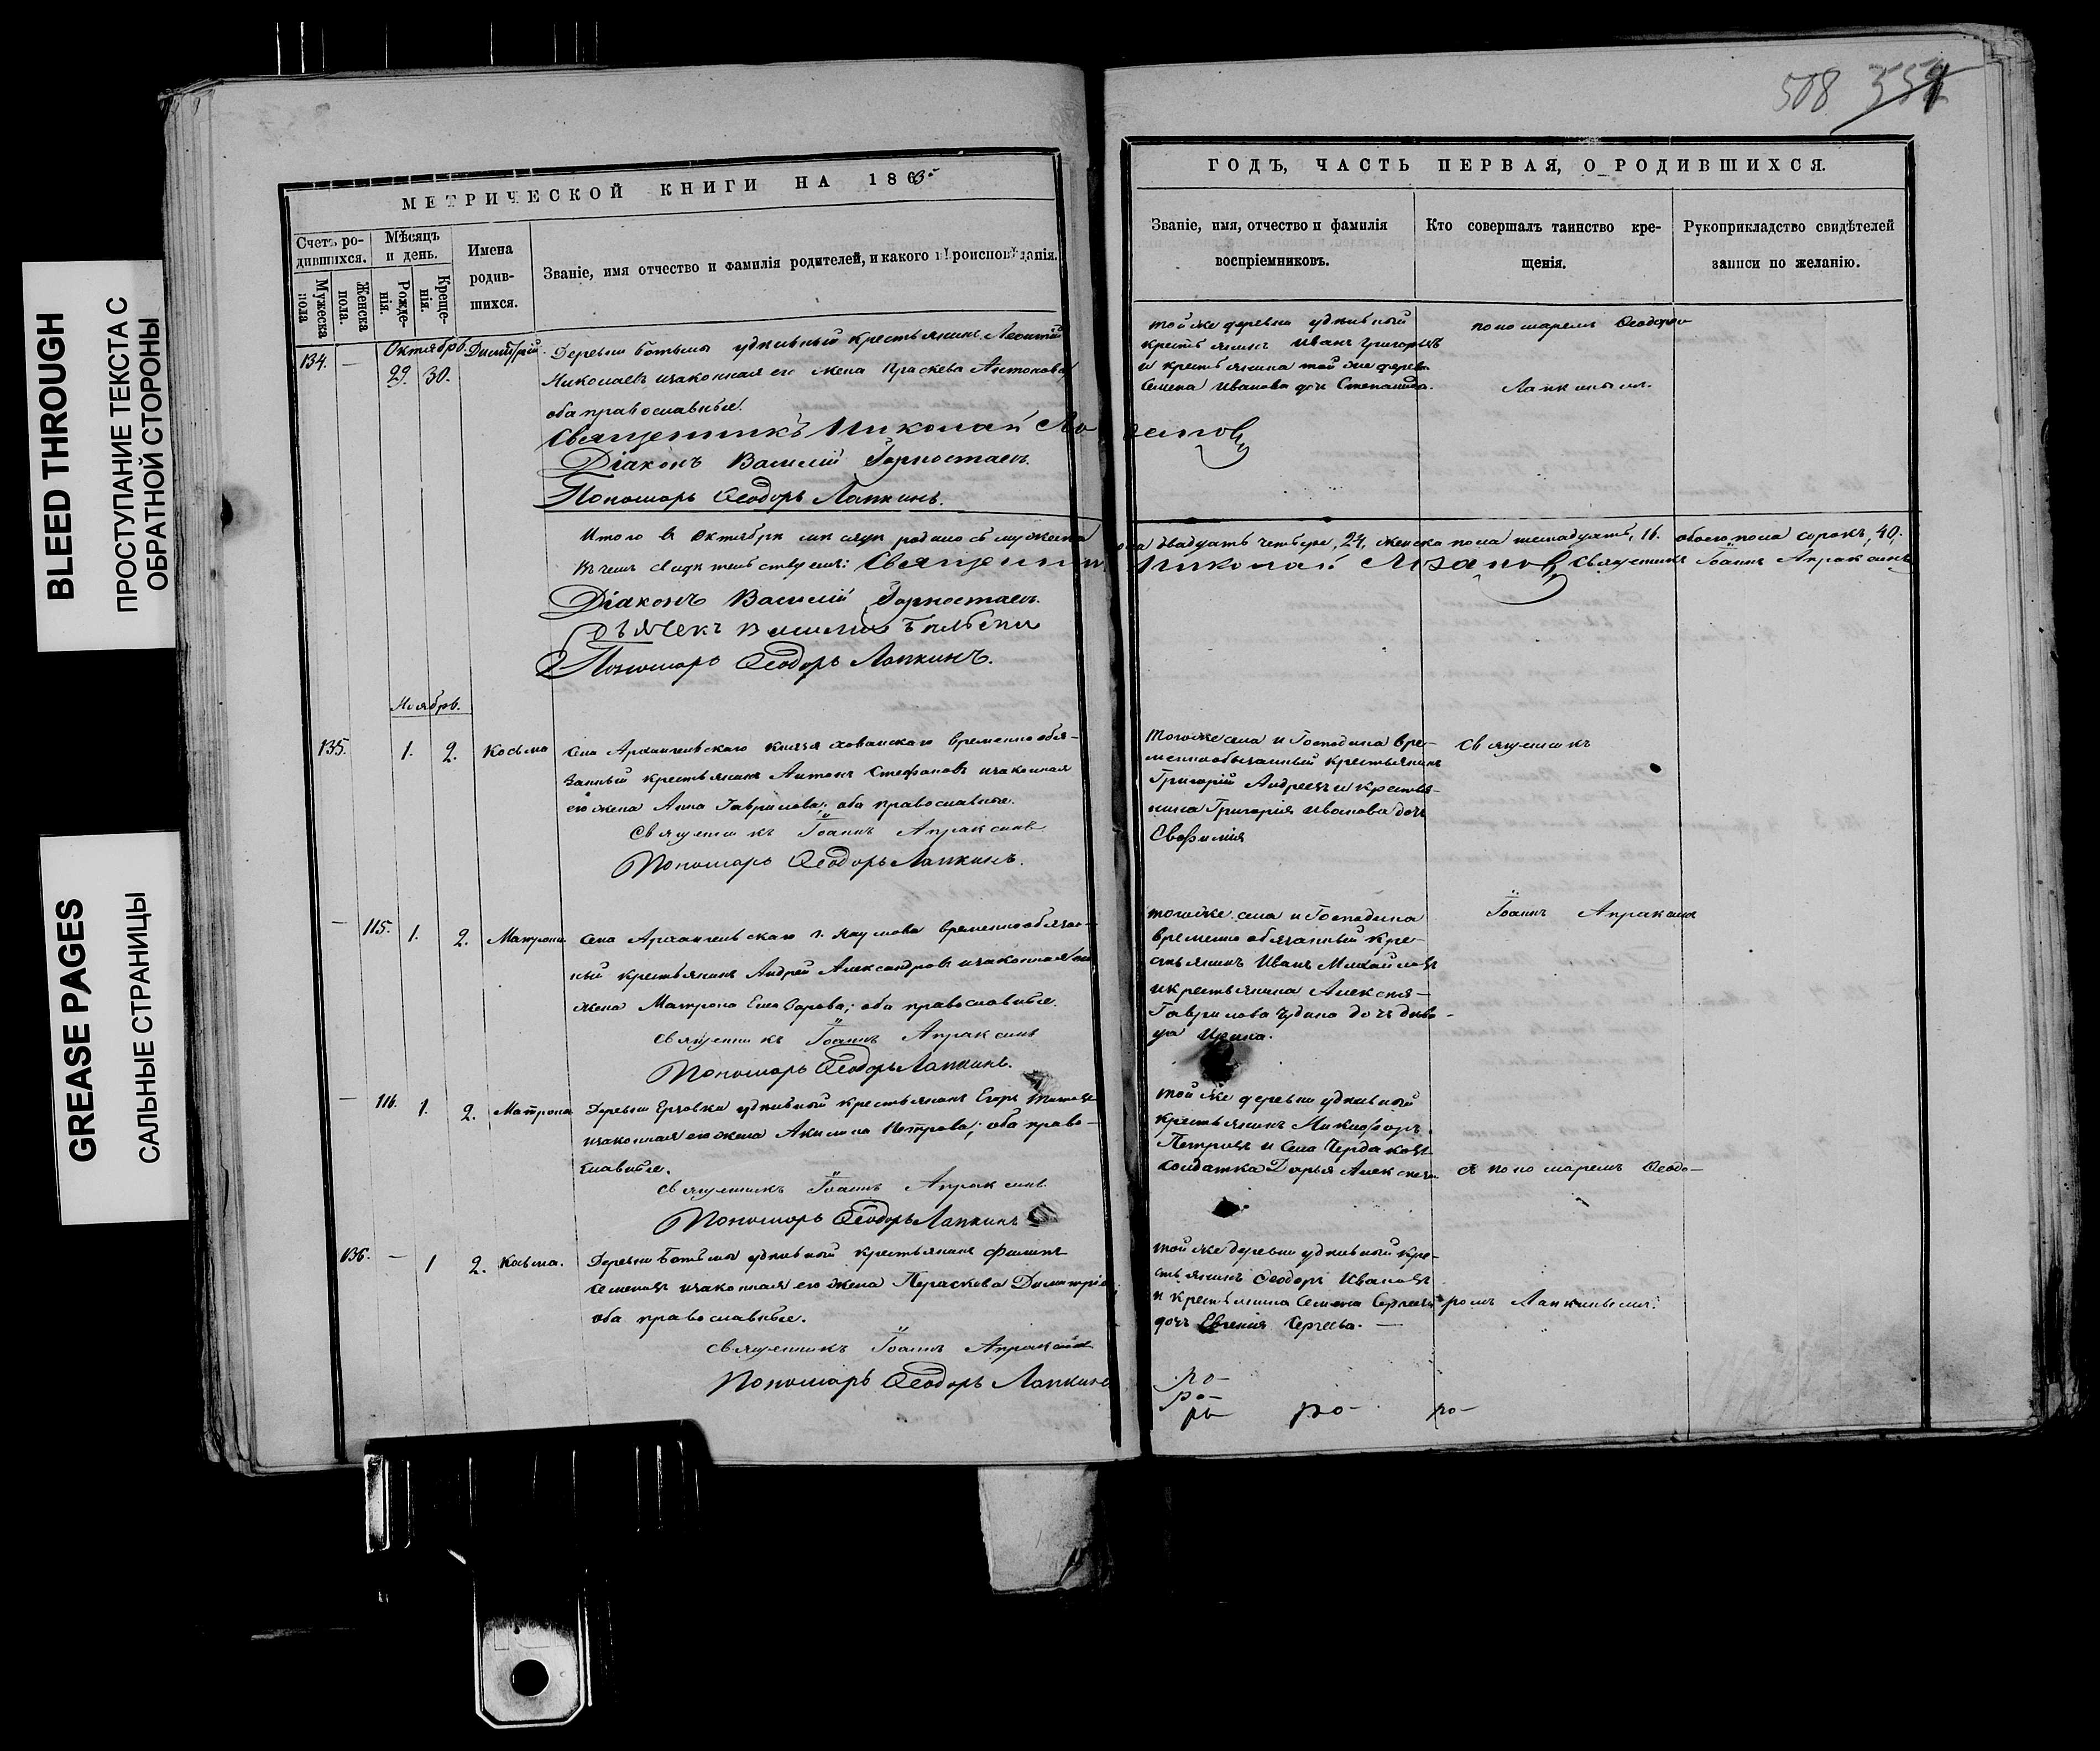 BLEED THROUGH
ПРОСТУПАНИЕ ТЕКСТА С
ОБРАТНОЙ СТОРОНЫ
GREASE PAGES
САЛЬНЫЕ СТРАНИЦЫ
МЕТРИЧЕСКОЙ КНИГИ НА 1863
Счетъ ро-
дившихся.
Мужеска
пола
Женска
пола.
Мѣсяцъ
и день.
Рожде-
нія.
Креще-
нія.
Имена
родив-
шихся.
Званіе, имя отчество и фамилія родителей, и какого вѣроисповѣданія.
134. — Октябрь 29. 30. Димитрій.
Деревни Ботьмы удѣльный крестьянинъ Леонтій
Николаевъ и законная его жена Праскева Антонова,
оба православные.
Священникъ Николай
Діаконъ Василій Горностаевъ.
Пономарь Ѳеодоръ Лапкинъ.
Итого въ Октябрѣ мѣсяцѣ родилось мужеска
въ чемъ свидѣтельствуемъ: Священникъ
Діаконъ Василій Горностаевъ.
Дьячекъ Василій
Пономарь Ѳеодоръ Лапкинъ.
Ноябрь.
135. 1. 2. Косьма
Села Архангельскаго Князя Хованскаго временнообя-
занный крестьянинъ Антонъ Стефановъ и законная
его жена Анна Гаврилова; оба православные.
Священникъ Іоаннъ Апраксинъ
Пономарь Ѳеодоръ Лапкинъ.
— 115. 1. 2. Матрона.
Села Архангельскаго г. Наумова временнообязан-
ный крестьянинъ Андрей Александровъ и законная его
жена Матрона Елеазарова; оба православные.
Священникъ Іоаннъ Апраксинъ
Пономарь Ѳеодоръ Лапкинъ.
— 116. 1. 2. Матрона
Деревни Ерзовки удѣльный крестьянинъ Егоръ
и законная его жена Акилина Петрова; оба право-
славные.
Священникъ Іоаннъ Апраксинъ
Пономарь Ѳеодоръ Лапкинъ
136. — 1 2. Косьма.
Деревни Ботьмы удѣльный крестьянинъ Филипъ
Семеновъ и законная его жена Параскева Димитріева,
оба православные.
Священникъ Іоаннъ Апраксинъ
Пономарь Ѳеодоръ Лапкинъ
508
ГОДЪ, ЧАСТЬ ПЕРВАЯ, О РОДИВШИХСЯ.
Званіе, имя, отчество и фамилія
воспріемниковъ.
Кто совершалъ таинство кре-
щенія.
Рукоприкладство свидѣтелей
записи по желанію.
той же деревни удѣльный
крестьянинъ Иванъ Григорьевъ
и крестьянина той же деревни
Семена Иванова дочь Степанида.
пономаремъ Ѳеодоромъ
Лапкинымъ.
пола двадцать четыре, 24, женска пола шестнадцать, 16. обоего пола сорокъ, 40.
Николай Священникъ Іоаннъ Апраксинъ
Того же села и Господина вре-
меннообязанный крестьянинъ
Григорій Андреевъ и крестья-
нина Григорія Иванова дочь
Евфимія
Священникъ
того же села и Господина
временно обязанный кре-
стьянинъ Иванъ Михайловъ
и крестьянина Алексѣя
Гаврилова дочь дѣви-
ца Ирина.
Іоаннъ Апраксинъ
той же деревни удѣльный
крестьянинъ Никифоръ
Петровъ и Села Чердаковъ
солдатка Дарья Алексѣева
съ пономаремъ Ѳеодо-
той же деревни удѣльный кре-
стьянинъ Ѳеодоръ Ивановъ
и крестьянина Семена Сергѣева
дочь Евгенія Сергѣева. —
ромъ Лапкинымъ.
ро-
ро-
ро- ро- ро-